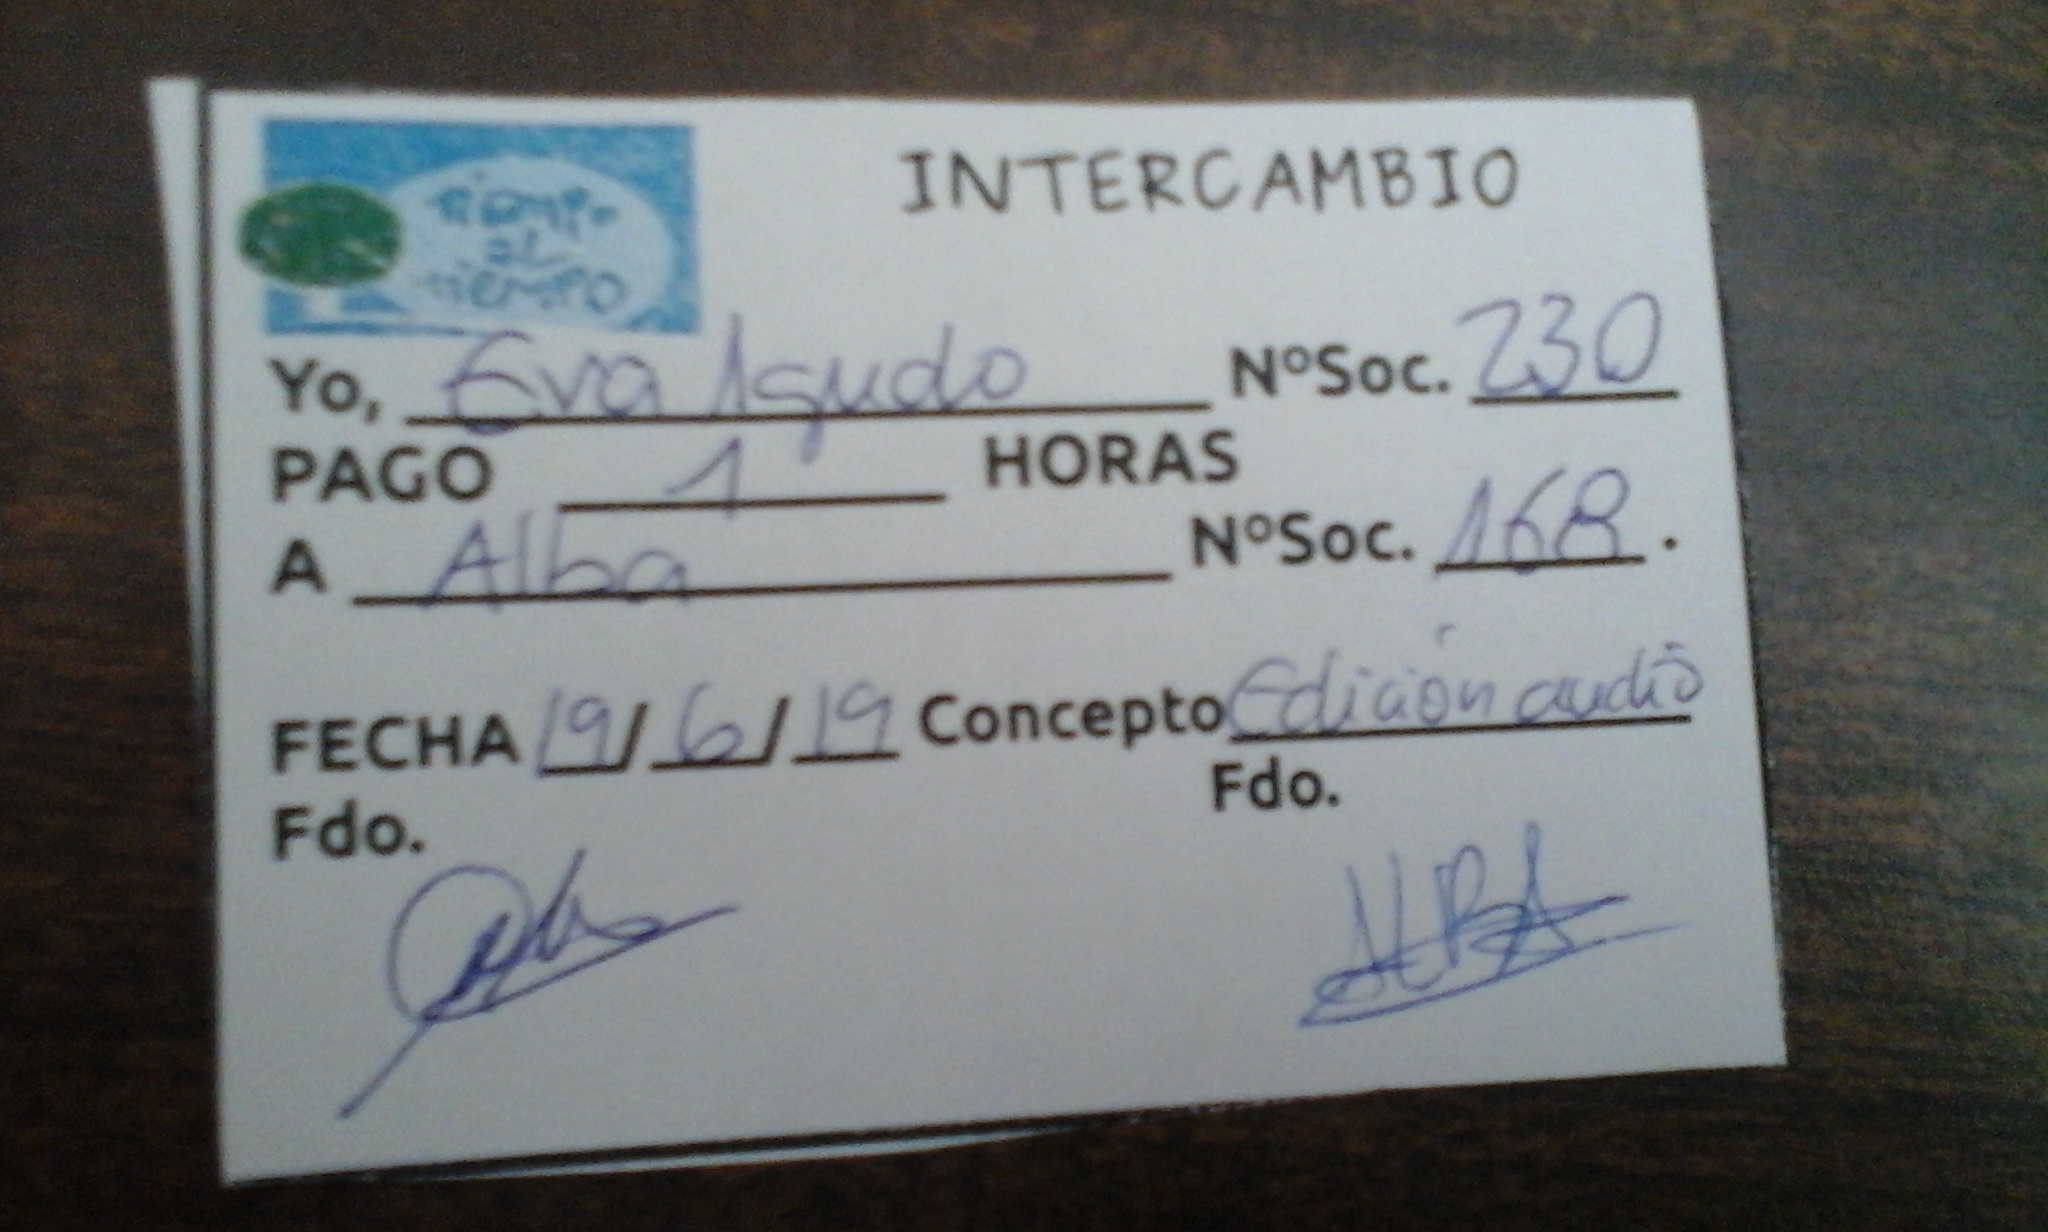 tiempo
al
tiempo
INTERCAMBIO
Yo, Eva Agudo NºSoc. 230
PAGO 1 HORAS
A Alba NºSoc. 168.
FECHA 19/6/19 Concepto Edición audio
Fdo. Fdo.
ALBA